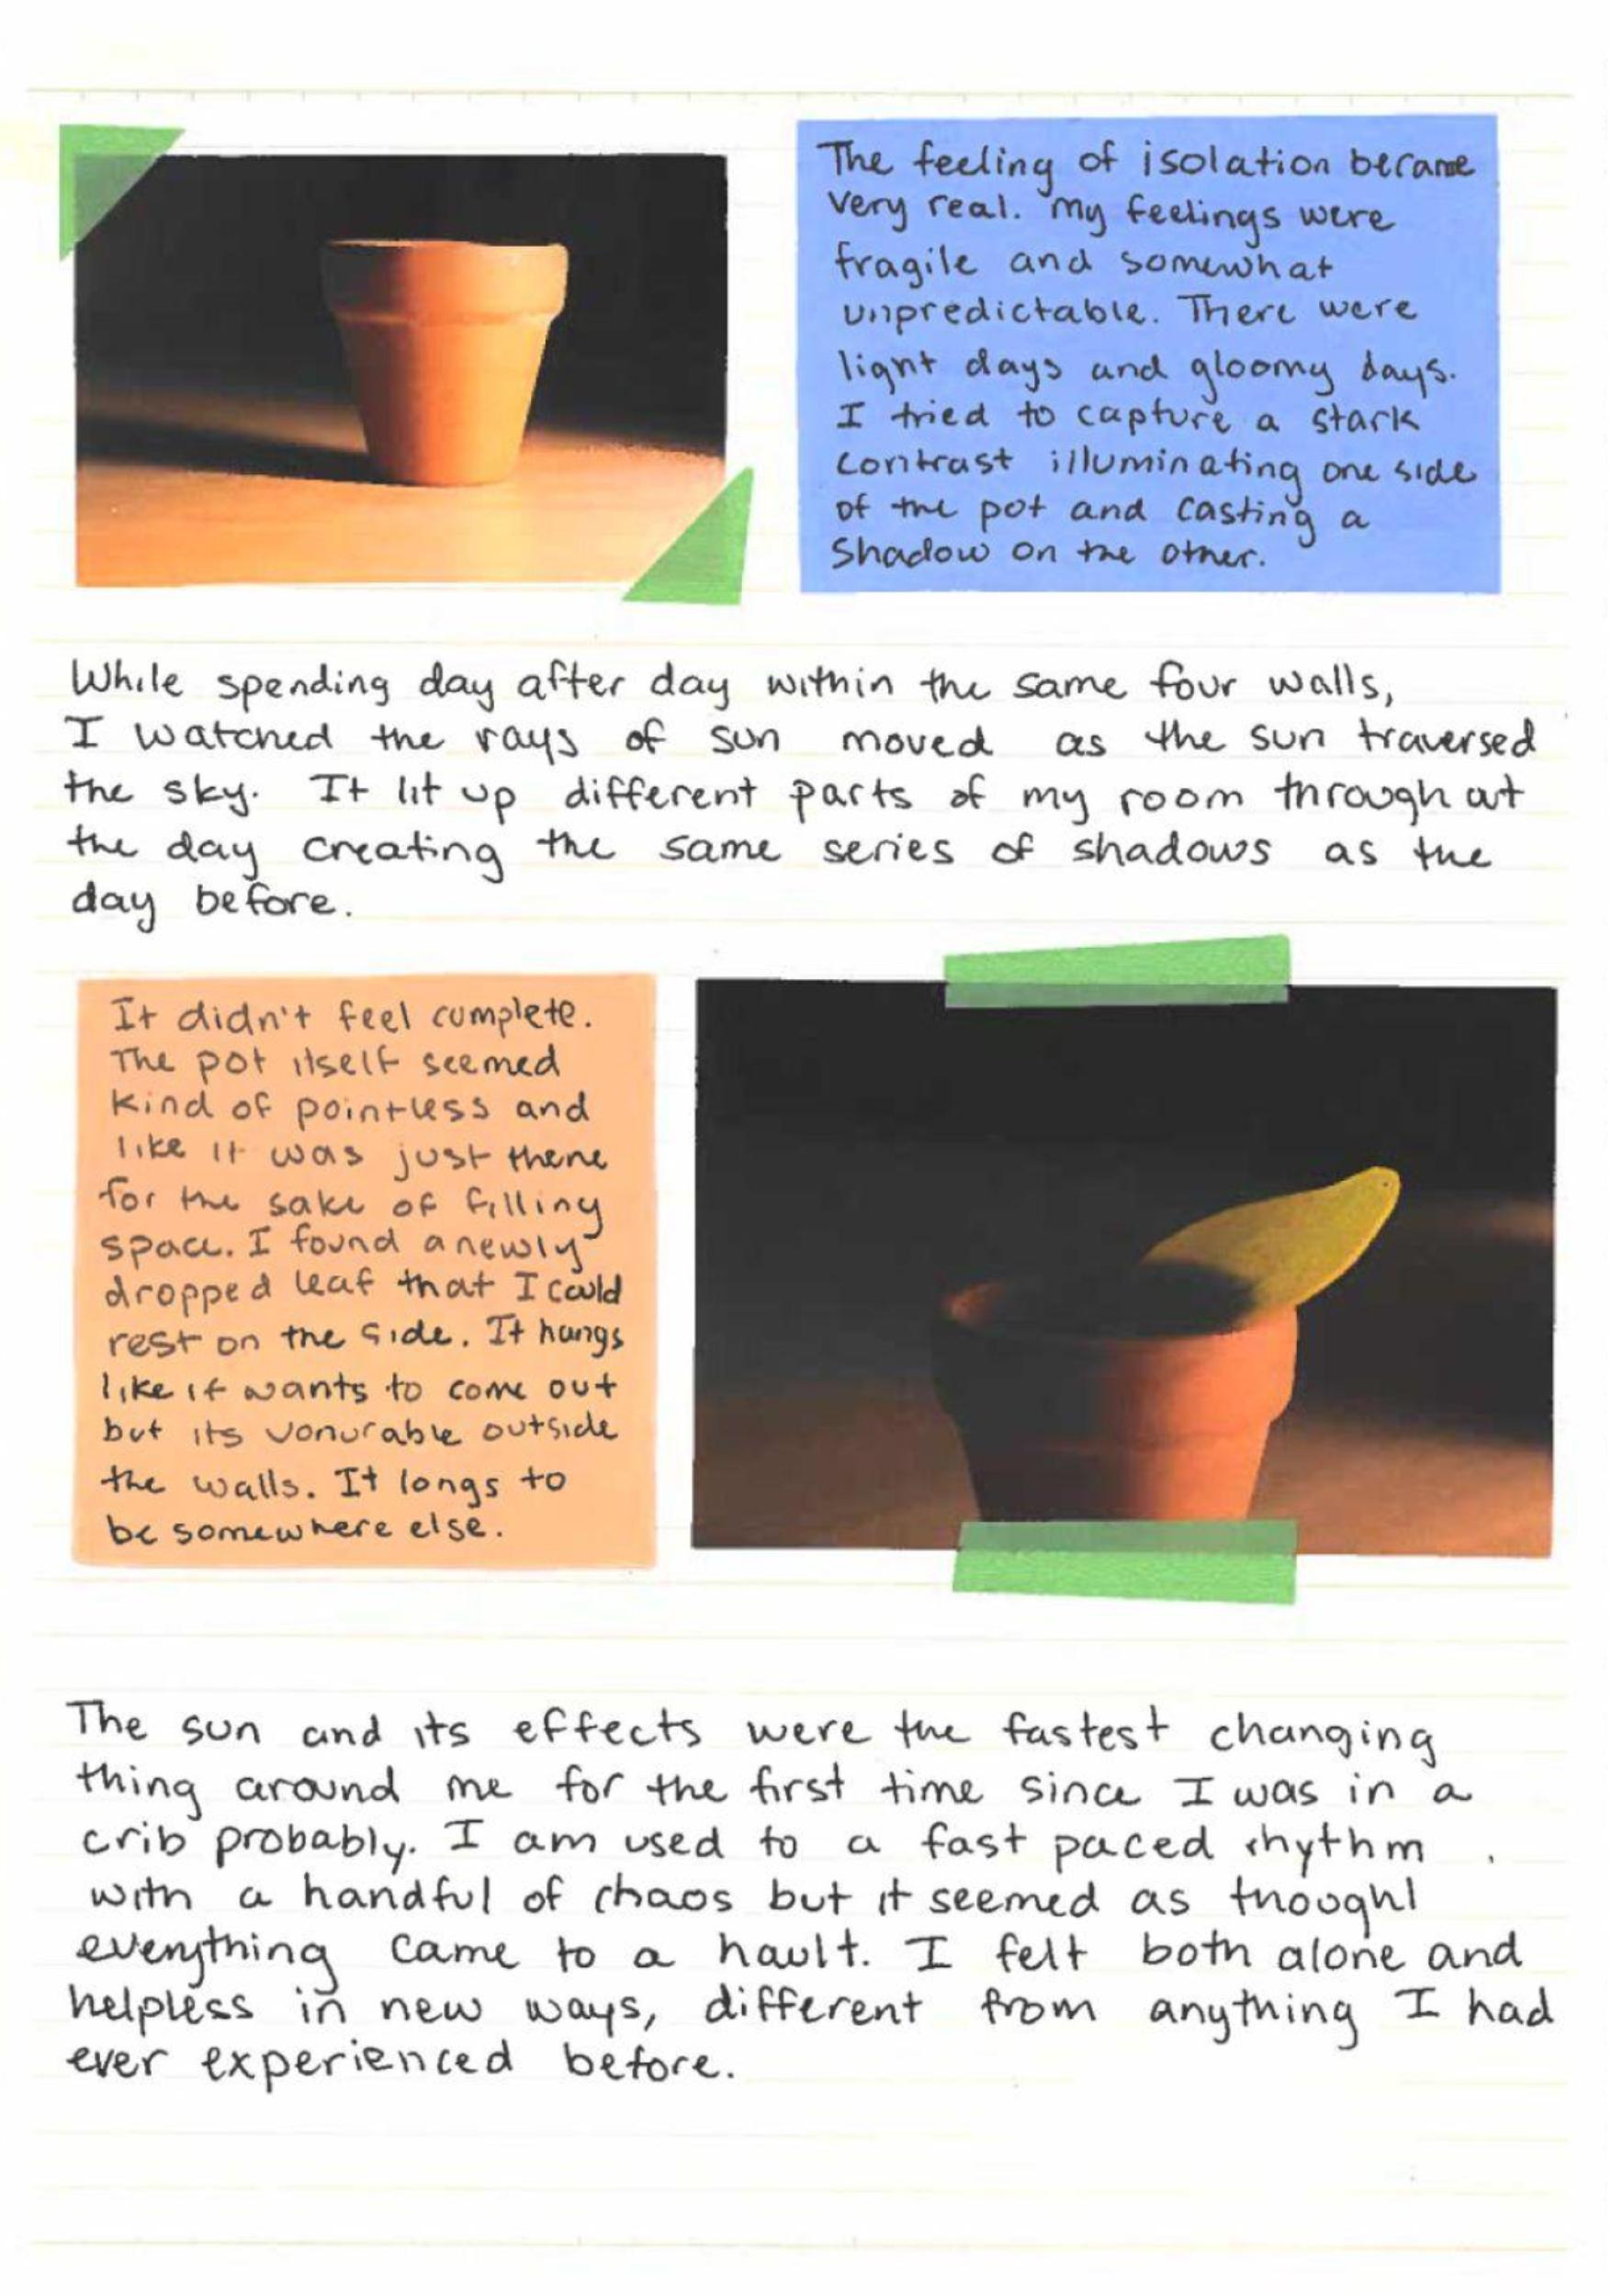 The feeling of isolation became
very real. My feelings were
fragile and somewhat
unpredictable. There were
light days and gloomy days.
I tried to capture a stark
contrast illuminating one side
of the pot and casting a
shadow on the other.
While spending day after day within the same four walls,
I watched the rays of sun moved as the sun traversed
the sky. It lit up different parts of my room throughout
the day creating the same series of shadows as the
day before.
It didn't feel complete.
The pot itself seemed
kind of pointless and
like it was just there
for the sake of filling
space. I found a newly
dropped leaf that I could
rest on the side. It hangs
like it wants to come out
but its vonurable outside
the walls. It longs to
be somewhere else.
The sun and its effects were the fastest changing
thing around me for the first time since I was in a
crib probably. I am used to a fast paced rhythm
with a handful of chaos but it seemed as though
everything came to a hault. I felt both alone and
helpless in new ways, different from anything I had
ever experienced before.